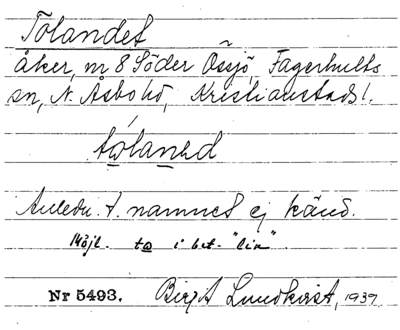 Tolandet
åker, nr 8 Söder Össjö, Fagerhults
sn, N. Åsbo hd, Kristianstads l.
to̲la̲nəd
Anledn. t. namnet ej känd.
Möjl. to̲ i bet. "lin".
Nr 5493. Birgit Lundkvist, 1939